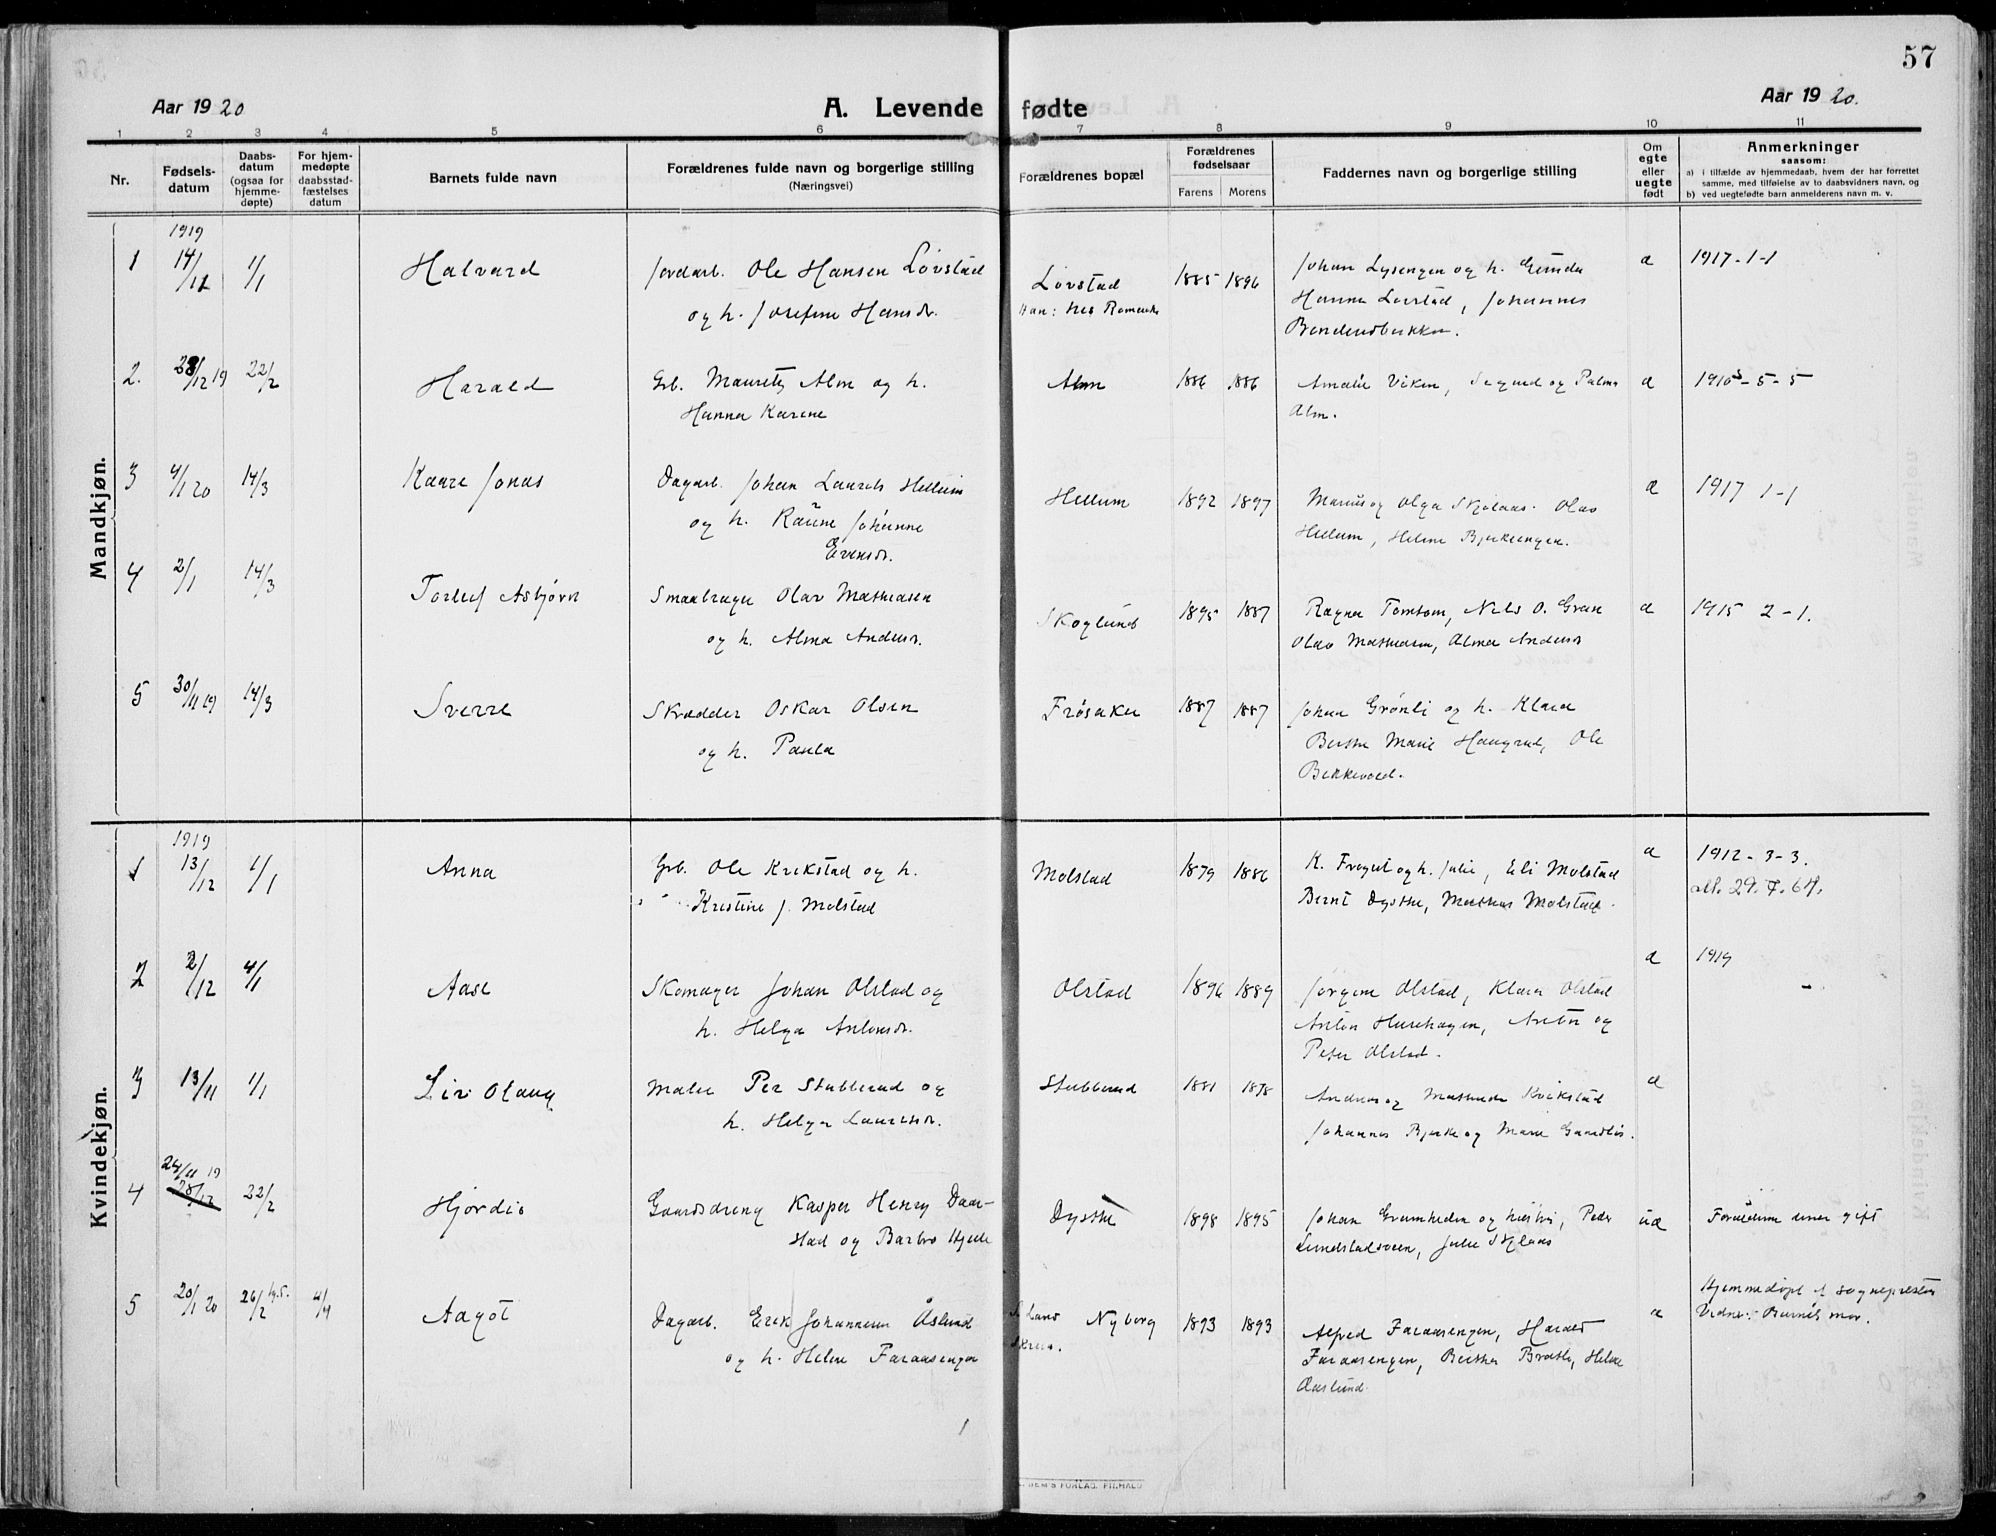 57
Aar 1920
A. Levende fødte
Aar 1920.
1 2 3 4 5 6 7 8 9 10 11
Nr.
Fødsels-
datum
Daabs-
datum
(ogsaa for
hjemme-
døpte)
For hjem-
medøpte
daabsstad-
fæstelses
datum
Barnets fulde navn
Forældrenes fulde navn og borgerlige stilling
(Næringsvei)
Forældrenes bopæl
Forældrenes
fødselsaar
Farens Morens
Faddernes navn og borgerlige stilling
Om
egte
eller
uegte
født
Anmerkninger
saasom:
a) i tilfælde av hjemmedaab, hvem der har forrettet
samme, med tilføielse av to daabsvidners navn, og
b) ved uegtefødte barn anmelderens navn m. v.
Mandkjøn.
1919
1 14/12 1/1 Halvard Jordarb. Ole Hansen Lovstad Lovstad 1885 1896 Johan Lysengen og h. æ 1917-1-1
og h. Josefine Hansdr. Han: Nes Romerike Hanna Lovstad, Johannes
2. 28/12 19 22/2 Harald Grb. Mauritz Alm og h. Alm 1886 1886 Amalie Viken, Sigurd og Palma æ 1910-5-5
Hanna Karine Alm.
3 4/1 20 14/3 Kaare Jonas Dagarb. Johan Laurits Hellum Hellum 1892 1897 Marius og Olga Skjelaas. Olav æ 1917 1-1
og h. Karine Johanne Hellum, Helene Bjerkeengen.
Evensdr.
4 2/1 14/3 Torleif Asbjørn Smaabruger Olav Mathiasen Skoglund 1895 1887 Ragna Tomtom, Nils O. Gran æ 1915 2-1.
og h. Alma Andersdr. Olav Mathiasen, Alma Andersdr
5 30/11 19 14/3 Sverre Skrædder Oskar Olsen Frøsaker 1887 1887 Johan Grønli og h. Klara
og h. Paula Berthe Marie Haugrud, Ole
Bekkevold.
Kvindekjøn.
1919
1 13/12 1/1 Anna Grb. Ole Krikstad og h. Molstad 1879 1886 K. Froyset og h. Julie, Eli Molstad æ 1912-3-3.
Kristine J. Molstad Bernt Dysthe, Mathias Molstad. att. 29.7.64.
2 2/12 4/1 Aase Skomager Johan Olstad og Olstad 1896 1889 Jørgine Olstad, Klara Olstad æ 1919
h. Helga Antonsdr. Anton Hurehagen, Anton og
Peter Olstad.
3 13/11 1/1 Liv Olaug Maler Per Stubberud og Stubberud 1881 1878 Andreas og Mathilde Kvikstad æ
h. Helga Lauritsdr. Johannes Bjerke og Marie
4 24/11 19 28/12 22/2 Hjørdis Gaardsdreng Kasper Henry Daar- Dysthe 1898 1895 Johan Gramheden og hustru, Peder uæ Forældrene senere gift
stad og Barbro Hjelle Lundstadsveen, Julie Skjelaas
5 20/1 20 26/2 hj.d. 4/4 Aagot Dagarb. Erik Johannesen Åslund S. Land Nyborg 1893 1893 Alfred Faraasengen, Harald æ Hjemmedøpt af sognepresten
og h. Helene Faraasengen Faraasengen, Berthea Bratli, Helene Vidner: Barnets mor.
Aaslund